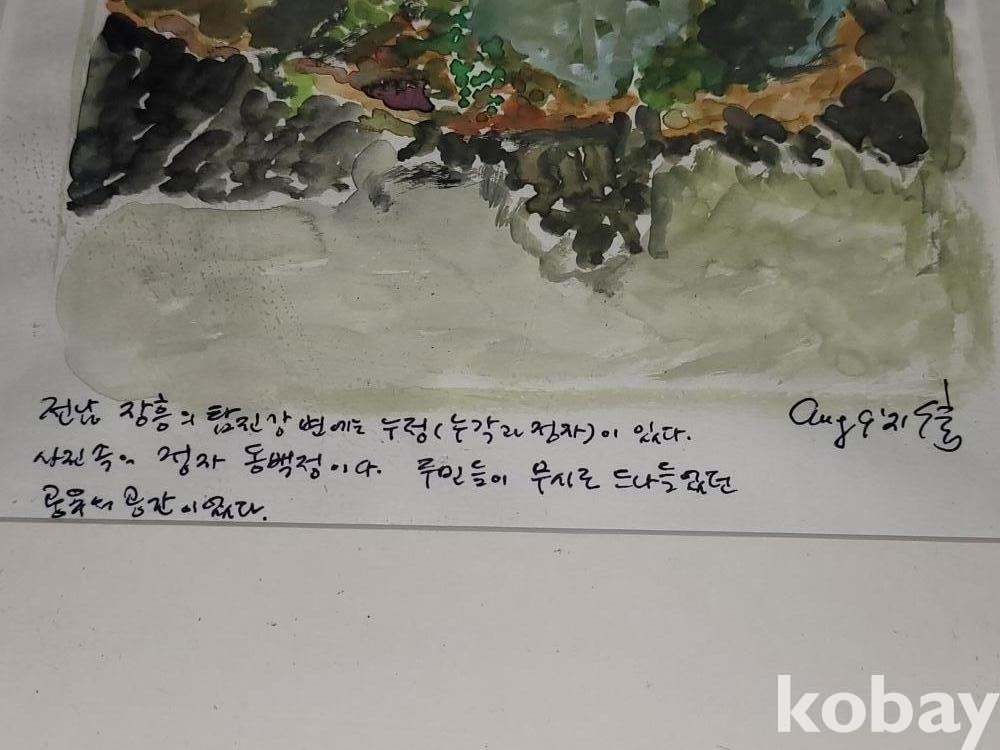 전남 장흥의 탐진강 변에는 누정(누각과 정자)이 있다.
Aug 9 '21
사진속의 정자 동백정이다. 루민들이 무시로 드나들었던
공유의 공간이었다.
kobay